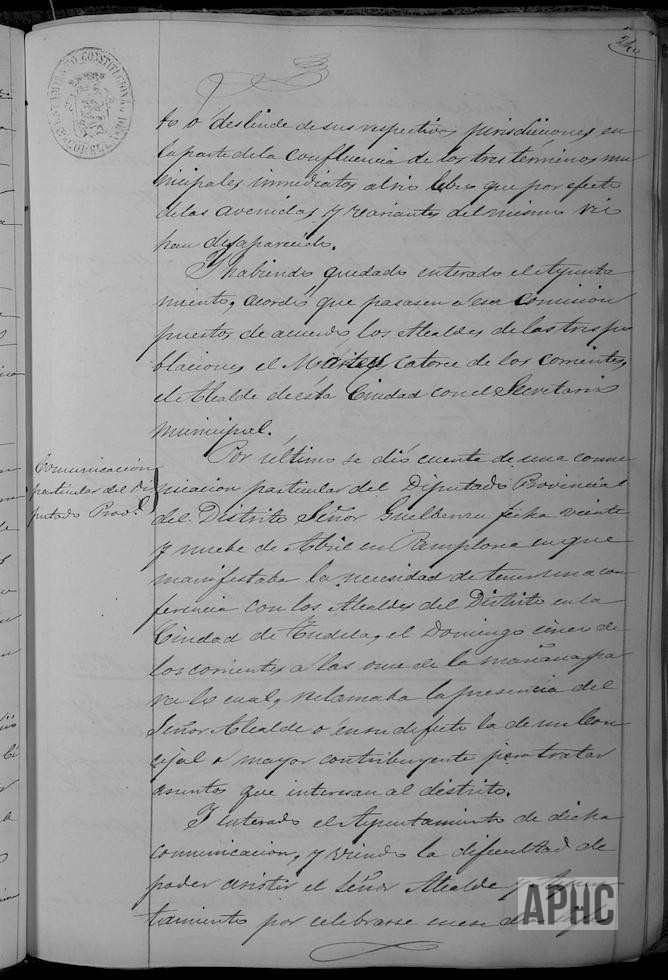 240
AYUNTAMIENTO CONSTITUCIONAL
to ó deslinde de sus respectivas jurisdicciones en
la parte de la confluencia de los tres términos mu
nicipales inmediatos al rio Ebro que por efecto
de las avenidas y variantes del mismo rio
han desaparecido.
Y habiendo quedado enterado el Ayunta
miento, acordó que pasasen á esa comision
puestos de acuerdo los Alcaldes de las tres po
blaciones el Martes catorce de los corrientes,
el Alcalde de ésta Ciudad con el Secretario
municipal.
Comunicación
particular del Di
putado Prov.l
Por último se dió cuenta de una comu
nicacion particular del Diputado Provincial
del Distrito Señor Guelbenzu fecha veinte
y nuebe de Abril en Pamplona en que
manifestaba la necesidad de tener una con
ferencia con los Alcaldes del Distrito en la
Ciudad de Tudela, el Domingo cinco de
los corrientes á las once de la mañana pa
ra lo cual, reclamaba la presencia del
Señor Alcalde ó en su defecto la de un Con
cejal o mayor contribuyente para tratar
asuntos que interesan al distrito.
Y enterado el Ayuntamiento de dicha
comunicacion, y viendo la dificultad de
poder asistir el Señor Alcalde y Ayun
tamiento por celebrarse en ese dia
APHC